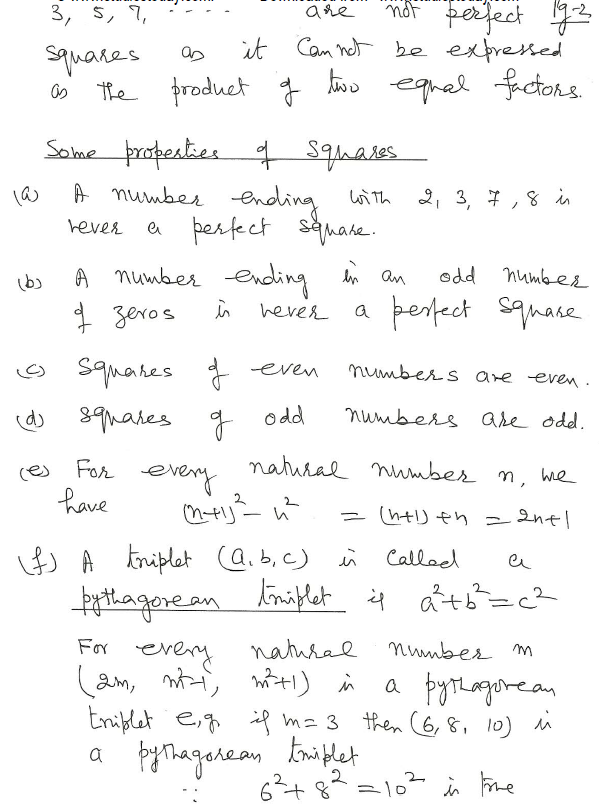 3, 5, 7, ---- are not perfect Pg-2
squares as it cannot be expressed
as the product of two equal factors.
Some properties of squares
(a) A number ending with 2, 3, 7, 8 is
never a perfect square.
(b) A number ending in an odd number
of zeros is never a perfect square
(c) Squares of even numbers are even.
(d) Squares of odd numbers are odd.
(e) For every natural number n, we
have (n+1)² - n² = (n+1) + n = 2n+1
(f) A triplet (a, b, c) is called a
pythagorean triplet if a² + b² = c²
For every natural number m
(2m, m²-1, m²+1) is a pythagorean
triplet e.g. if m = 3 then (6, 8, 10) is
a pythagorean triplet
∵ 6² + 8² = 10² is true